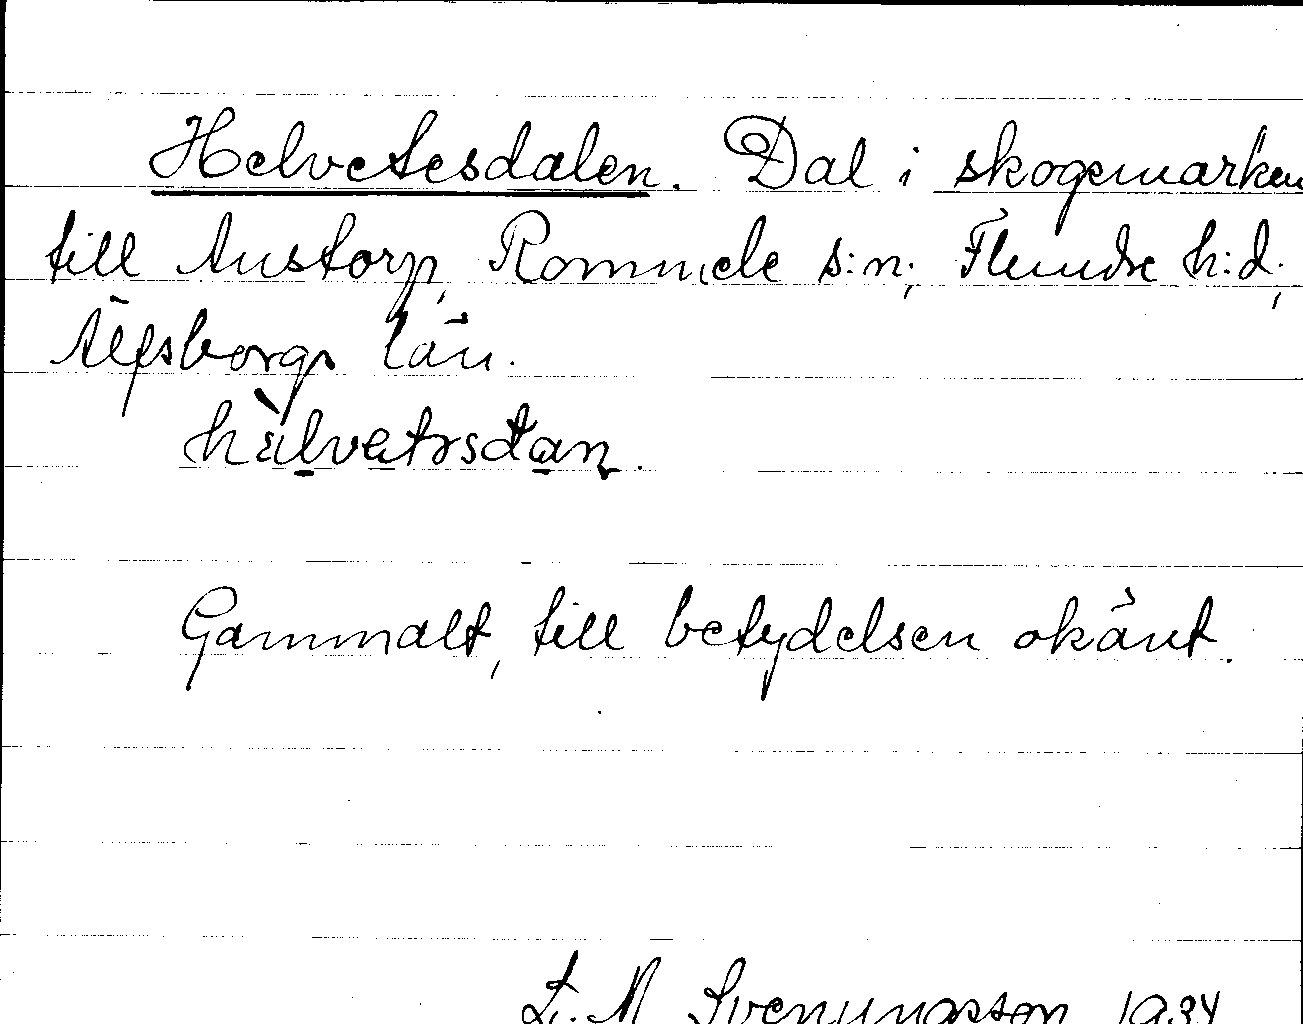 Helvetesdalen. Dal i skogemarken
till Anstorp, Rommele s:n; Flundre h:d;
Älfsborgs län.
hälvetəsdan.
Gammalt, till betydelsen okänt.
L. M Svenungsson 1934